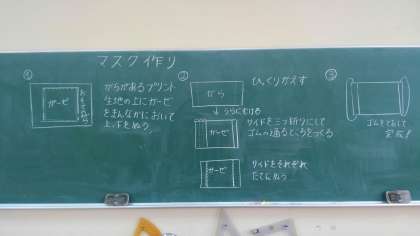 マスク作り
①
ガーゼ
おもてのめん
がらがあるプリント
生地の上にガーゼ
をまんなかにおいて
上、下をぬう。
②
がら
ひっくりかえす
↓うらにむける
ガーゼ
サイドを三つ折りにして
ゴムの通るところをつくる
↓
ガーゼ
サイドをそれぞれ
たてにぬう
③
ゴムをとおして
完成！